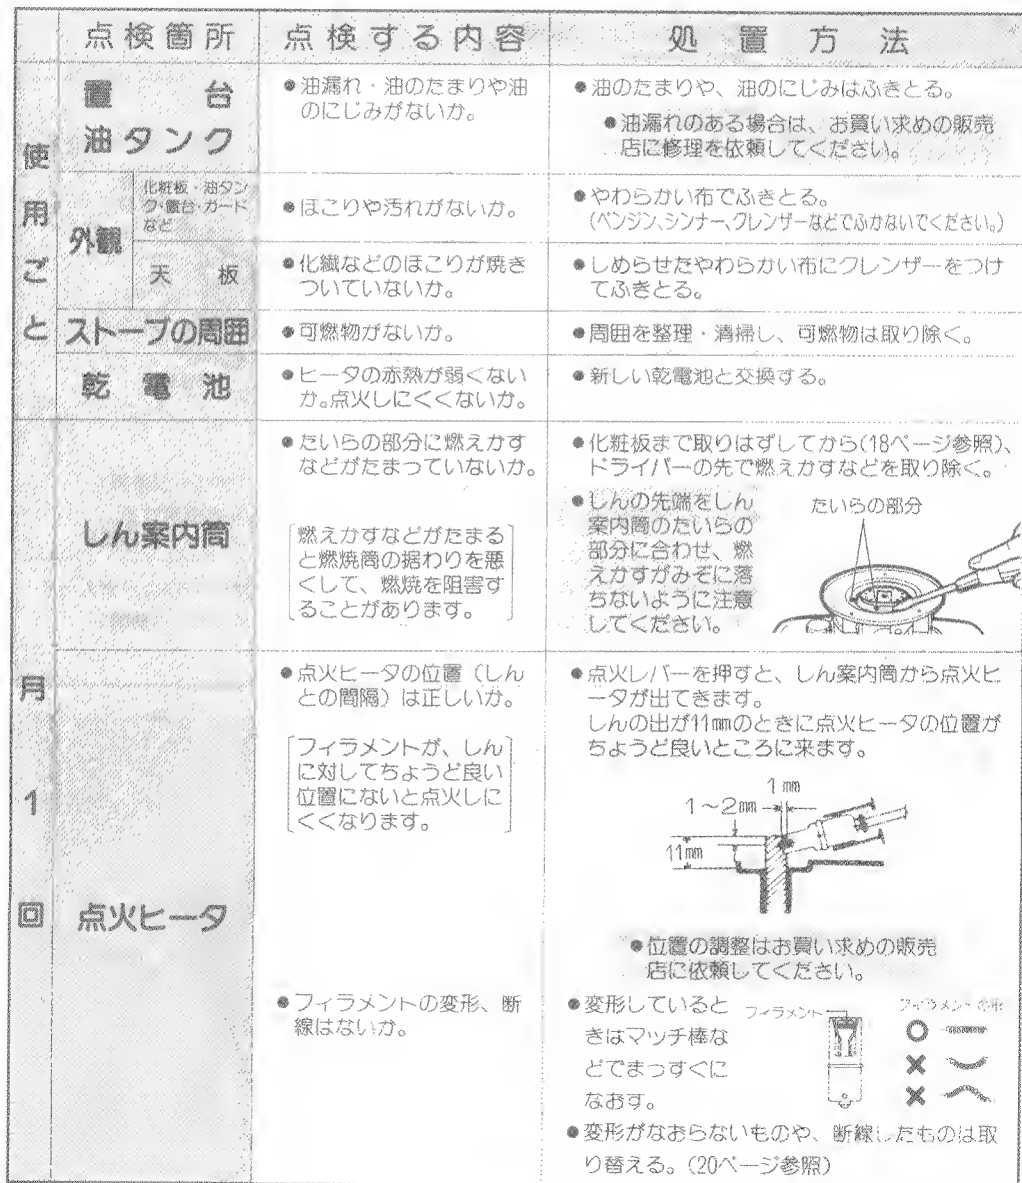 点検箇所 点検する内容 処置方法
使用ごと
置台
油タンク
●油漏れ・油のたまりや油
のにじみがないか。
●油のたまりや、油のにじみはふきとる。
●油漏れのある場合は、お買い求めの販売
店に修理を依頼してください。
外観
化粧板・油タン
ク・置台・ガード
など
●ほこりや汚れがないか。
●やわらかい布でふきとる。
(ベンジン、シンナー、クレンザーなどでふかないでください。)
天板
●化繊などのほこりが焼き
ついていないか。
●しめらせたやわらかい布にクレンザーをつけ
てふきとる。
ストーブの周囲
●可燃物がないか。
●周囲を整理・清掃し、可燃物は取り除く。
乾電池
●ヒータの赤熱が弱くない
か。点火しにくくないか。
●新しい乾電池と交換する。
月1回
しん案内筒
●たいらの部分に燃えかす
などがたまっていないか。
燃えかすなどがたまる
と燃焼筒の据わりを悪
くして、燃焼を阻害す
ることがあります。
●化粧板まで取りはずしてから(18ページ参照)、
ドライバーの先で燃えかすなどを取り除く。
●しんの先端をしん
案内筒のたいらの
部分に合わせ、燃
えかすがみぞに落
ちないように注意
してください。
たいらの部分
点火ヒータ
●点火ヒータの位置（しん
との間隔）は正しいか。
フィラメントが、しん
に対してちょうど良い
位置にないと点火しに
くくなります。
●点火レバーを押すと、しん案内筒から点火ヒ
ータが出てきます。
しんの出が11㎜のときに点火ヒータの位置が
ちょうど良いところに来ます。
1㎜
1～2㎜
11㎜
●位置の調整はお買い求めの販売
店に依頼してください。
●フィラメントの変形、断
線はないか。
●変形していると
きはマッチ棒な
どでまっすぐに
なおす。
フィラメント
フィラメントの形
○
×
×
●変形がなおらないものや、断線したものは取
り替える。(20ページ参照)